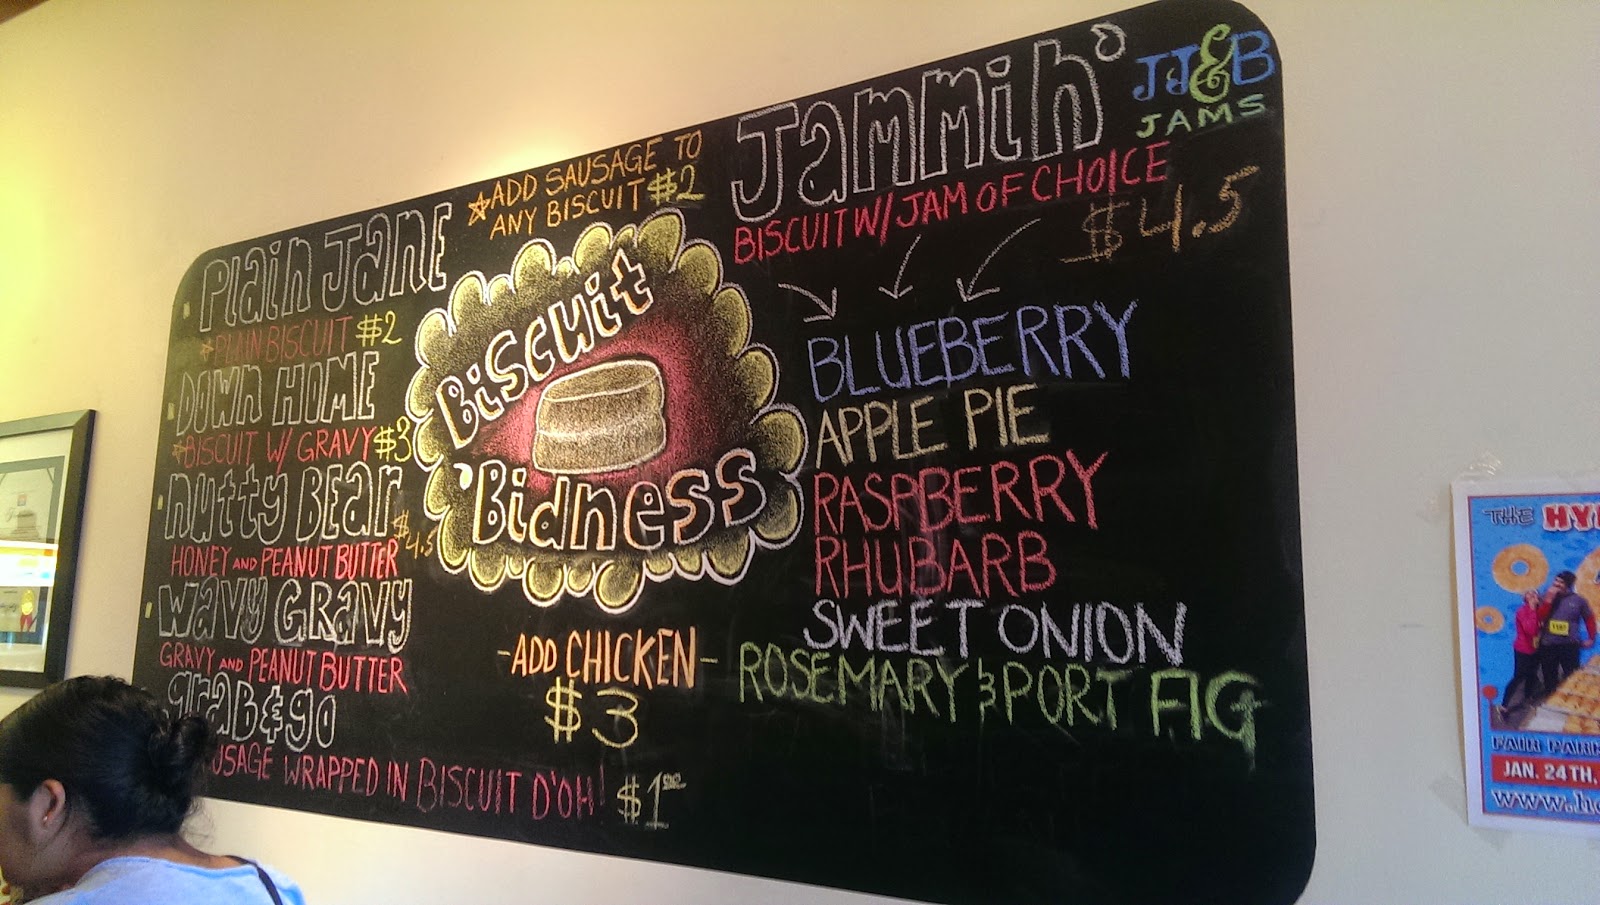 Plain Jane
PLAIN BISCUIT $2
DOWN HOME
BISCUIT W/ GRAVY $3
nutty BEAr
$4.5
HONEY AND PEANUT BUTTER
WAVY GRAVY
GRAVY AND PEANUT BUTTER
grab & go
USAGE WRAPPED IN BISCUIT D'OH! $1
ADD SAUSAGE TO
ANY BISCUIT $2
Biscuit
'Bidness
-ADD CHICKEN-
$3
Jammin'
JJ&B
JAMS
BISCUIT W/ JAM OF CHOICE
$4.5
BLUEBERRY
APPLE PIE
RASPBERRY
RHUBARB
SWEET ONION
ROSEMARY & PORT FIG
THE HY
FAIR PARK
JAN. 24TH,